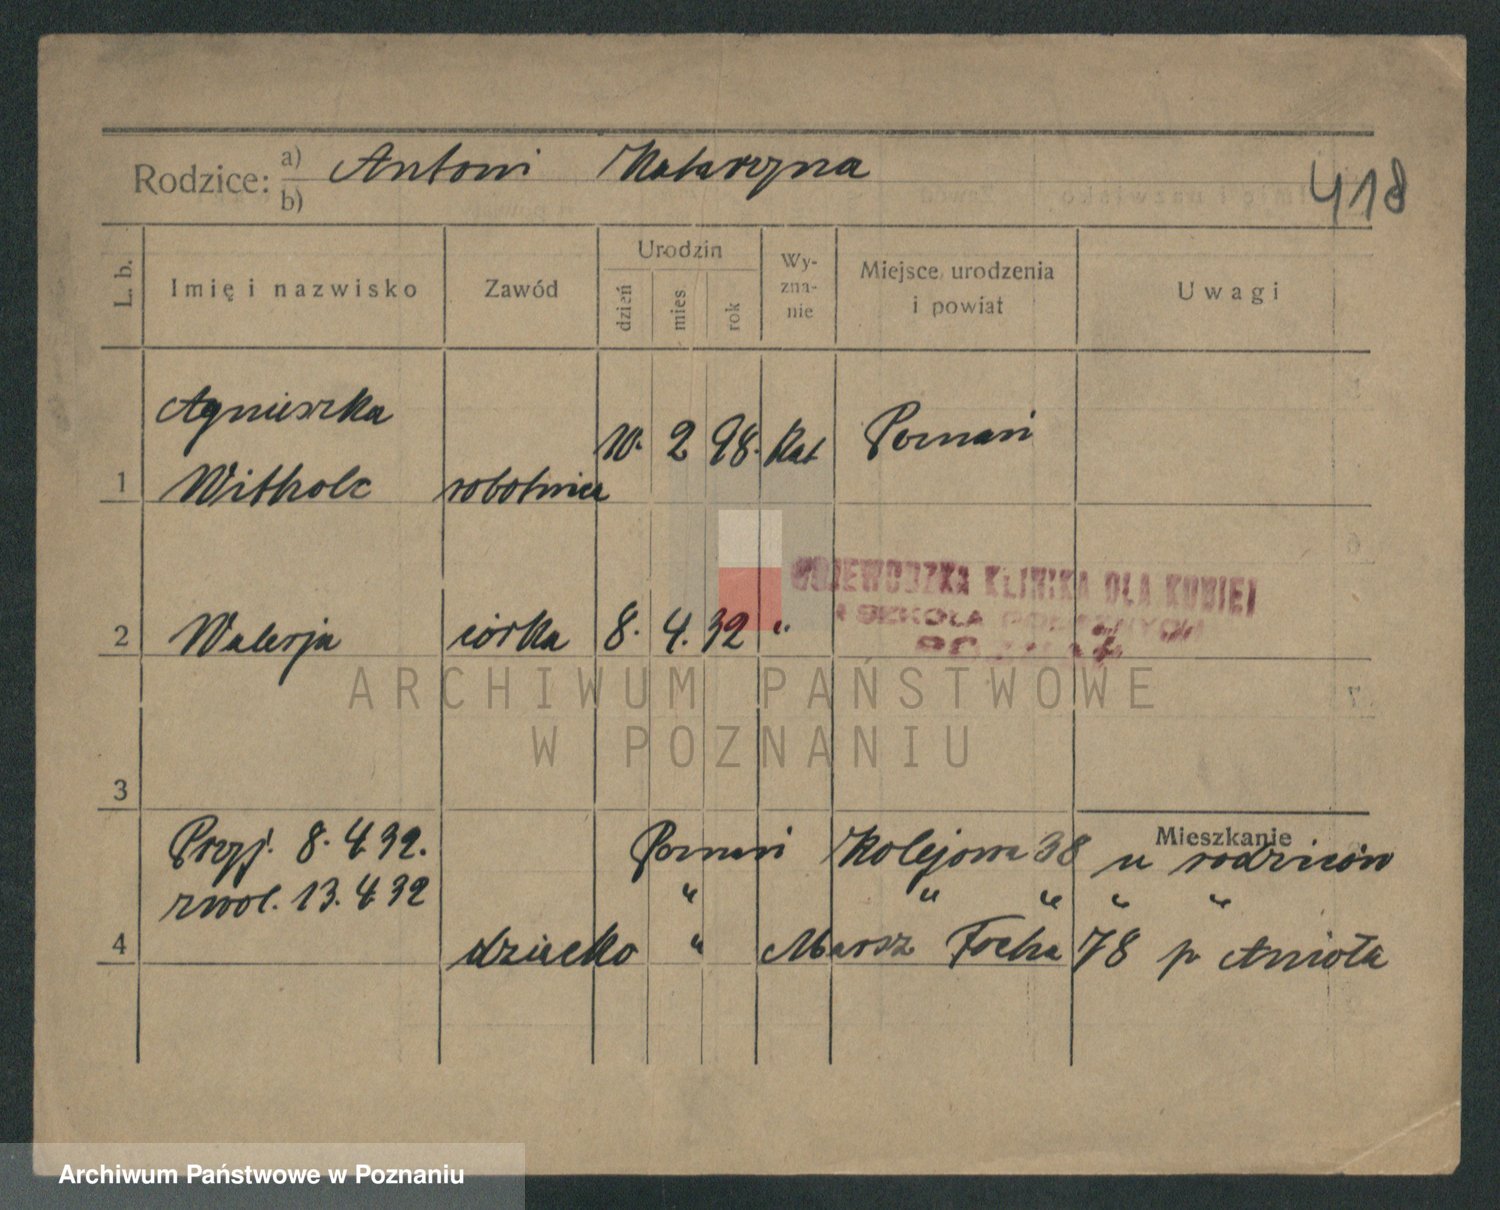 Rodzice: a) Antoni Katarzyna
b)
418
L. b.
Imię i nazwisko
Zawód
Urodzin
dzień
mies
rok
Wy-
zna-
nie
Miejsce urodzenia
i powiat
Uwagi
Agnieszka
1 Witholc robotnica 10. 2 98. Kat Poznań
WOJEWÓDZKA KLINIKA DLA KOBIET
I SZKOŁA POŁOŻNYCH
POZNAŃ
2 Walerja córka 8. 4. 32 "
ARCHIWUM PAŃSTWOWE
W POZNANIU
3
Mieszkanie
Przyj. 8. 4 32. Poznań Kolejowa 38 u rodziców
zwol. 13. 4 32 " " " " "
4 dziecko " Marsz Focha 78 p Anioła
Archiwum Państwowe w Poznaniu